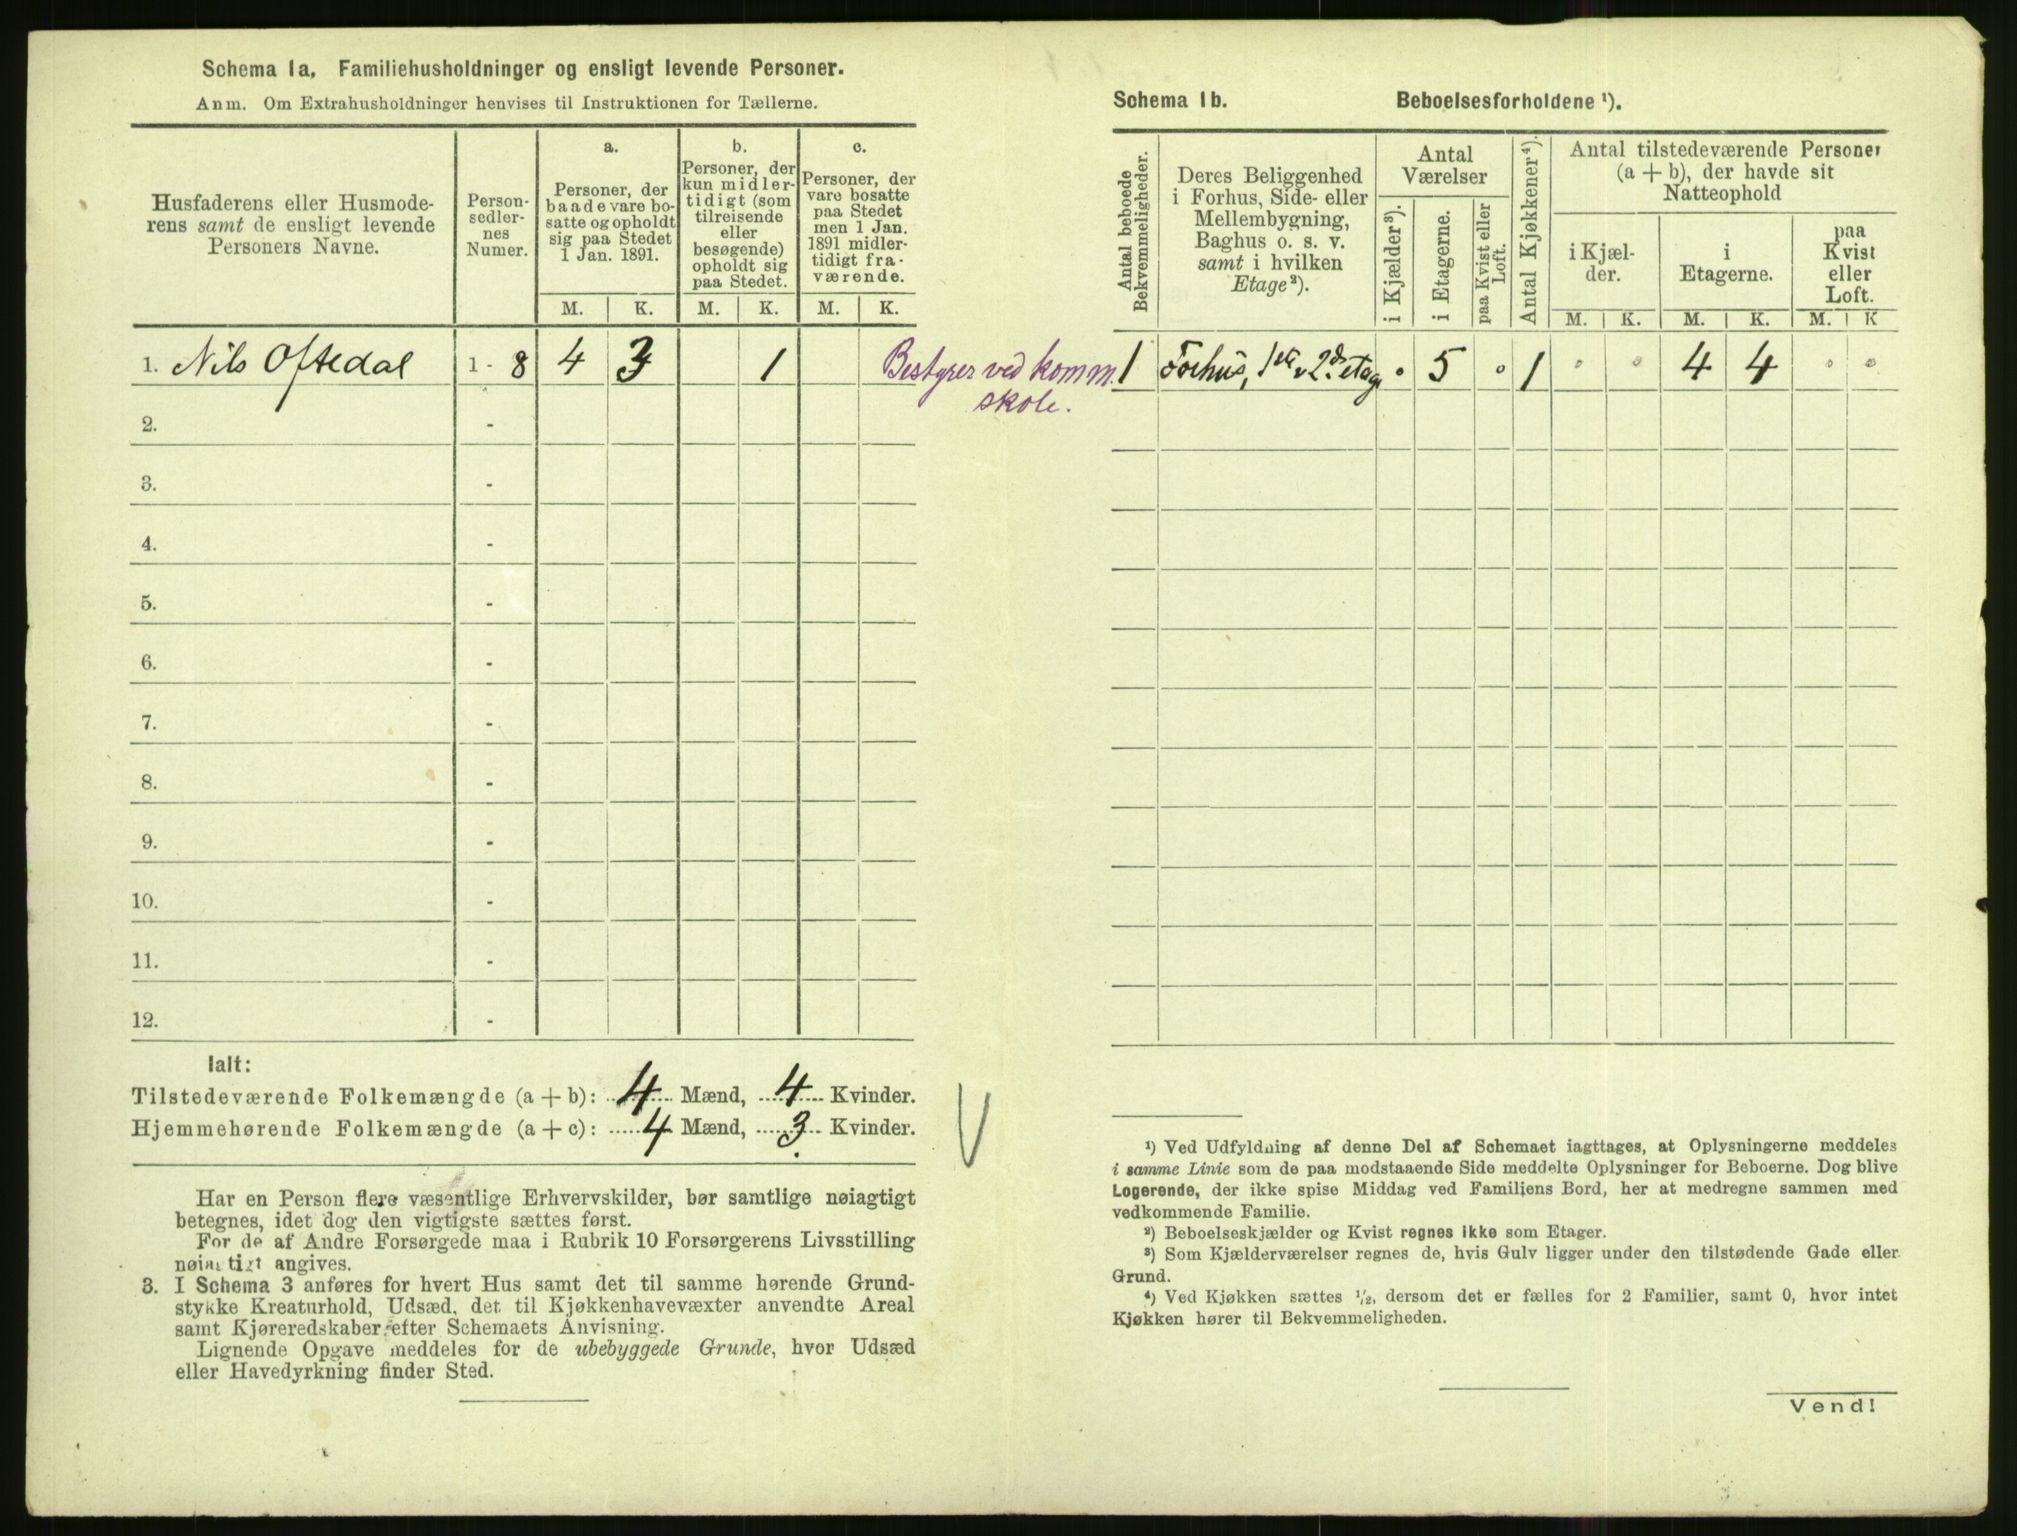 Schema 1a. Familiehusholdninger og ensligt levende Personer.
Anm. Om Extrahusholdninger henvises til Instruktionen for Tællerne.
Husfaderens eller Husmode-
rens samt de ensligt levende
Personers Navne.
Person-
sedler-
nes
Numer.
a.
Personer, der
baade vare bo-
satte og opholdt
sig paa Stedet
1 Jan. 1891.
b.
Personer, der
kun midler-
tidigt (som
tilreisende
eller
besøgende)
opholdt sig
paa Stedet.
c.
Personer, der
vare bosatte
paa Stedet
men 1 Jan.
1891 midler-
tidigt fra-
værende.
M. K. M. K. M. K.
1. Nils Oftedal 1 - 8 4 3 1
Bestyrer ved komm.
skole.
2. -
3. -
4. -
5. -
6. -
7. -
8. -
9. -
10. -
11. -
12. -
Ialt:
Tilstedeværende Folkemængde (a + b): 4 Mænd, 4 Kvinder.
Hjemmehørende Folkemængde (a + c): 4 Mænd, 3 Kvinder.
Har en Person flere væsentlige Erhvervskilder, bør samtlige nøiagtigt
betegnes, idet dog den vigtigste sættes først.
For de af Andre Forsørgede maa i Rubrik 10 Forsørgerens Livsstilling
nøiagtigt angives.
3. I Schema 3 anføres for hvert Hus samt det til samme hørende Grund-
stykke Kreaturhold, Udsæd, det til Kjøkkenhavevæxter anvendte Areal
samt Kjøreredskaber efter Schemaets Anvisning.
Lignende Opgave meddeles for de ubebyggede Grunde, hvor Udsæd
eller Havedyrkning finder Sted.
Schema 1b. Beboelsesforholdene ¹).
Antal beboede
Bekvemmeligheder.
Deres Beliggenhed
i Forhus, Side- eller
Mellembygning,
Baghus o. s. v.
samt i hvilken
Etage²).
Antal
Værelser
i Kjælder³).
i Etagerne.
paa Kvist eller
Loft.
Antal Kjøkkener⁴).
Antal tilstedeværende Personer
(a + b), der havde sit
Natteophold
i Kjæl-
der.
i
Etagerne.
paa
Kvist
eller
Loft.
M. K. M. K. M. K
1 Forhus, 1ste 2den etage 0 5 0 1 0 0 4 4 0 0
¹) Ved Udfyldning af denne Del af Schemaet iagttages, at Oplysningerne meddeles
i samme Linie som de paa modstaaende Side meddelte Oplysninger for Beboerne. Dog blive
Logerende, der ikke spise Middag ved Familjens Bord, her at medregne sammen med
vedkommende Familie.
²) Beboelseskjælder og Kvist regnes ikke som Etager.
³) Som Kjælderværelser regnes de, hvis Gulv ligger under den tilstødende Gade eller
Grund.
⁴) Ved Kjøkken sættes ½, dersom det er fælles for 2 Familier, samt 0, hvor intet
Kjøkken hører til Bekvemmeligheden.
Vend!